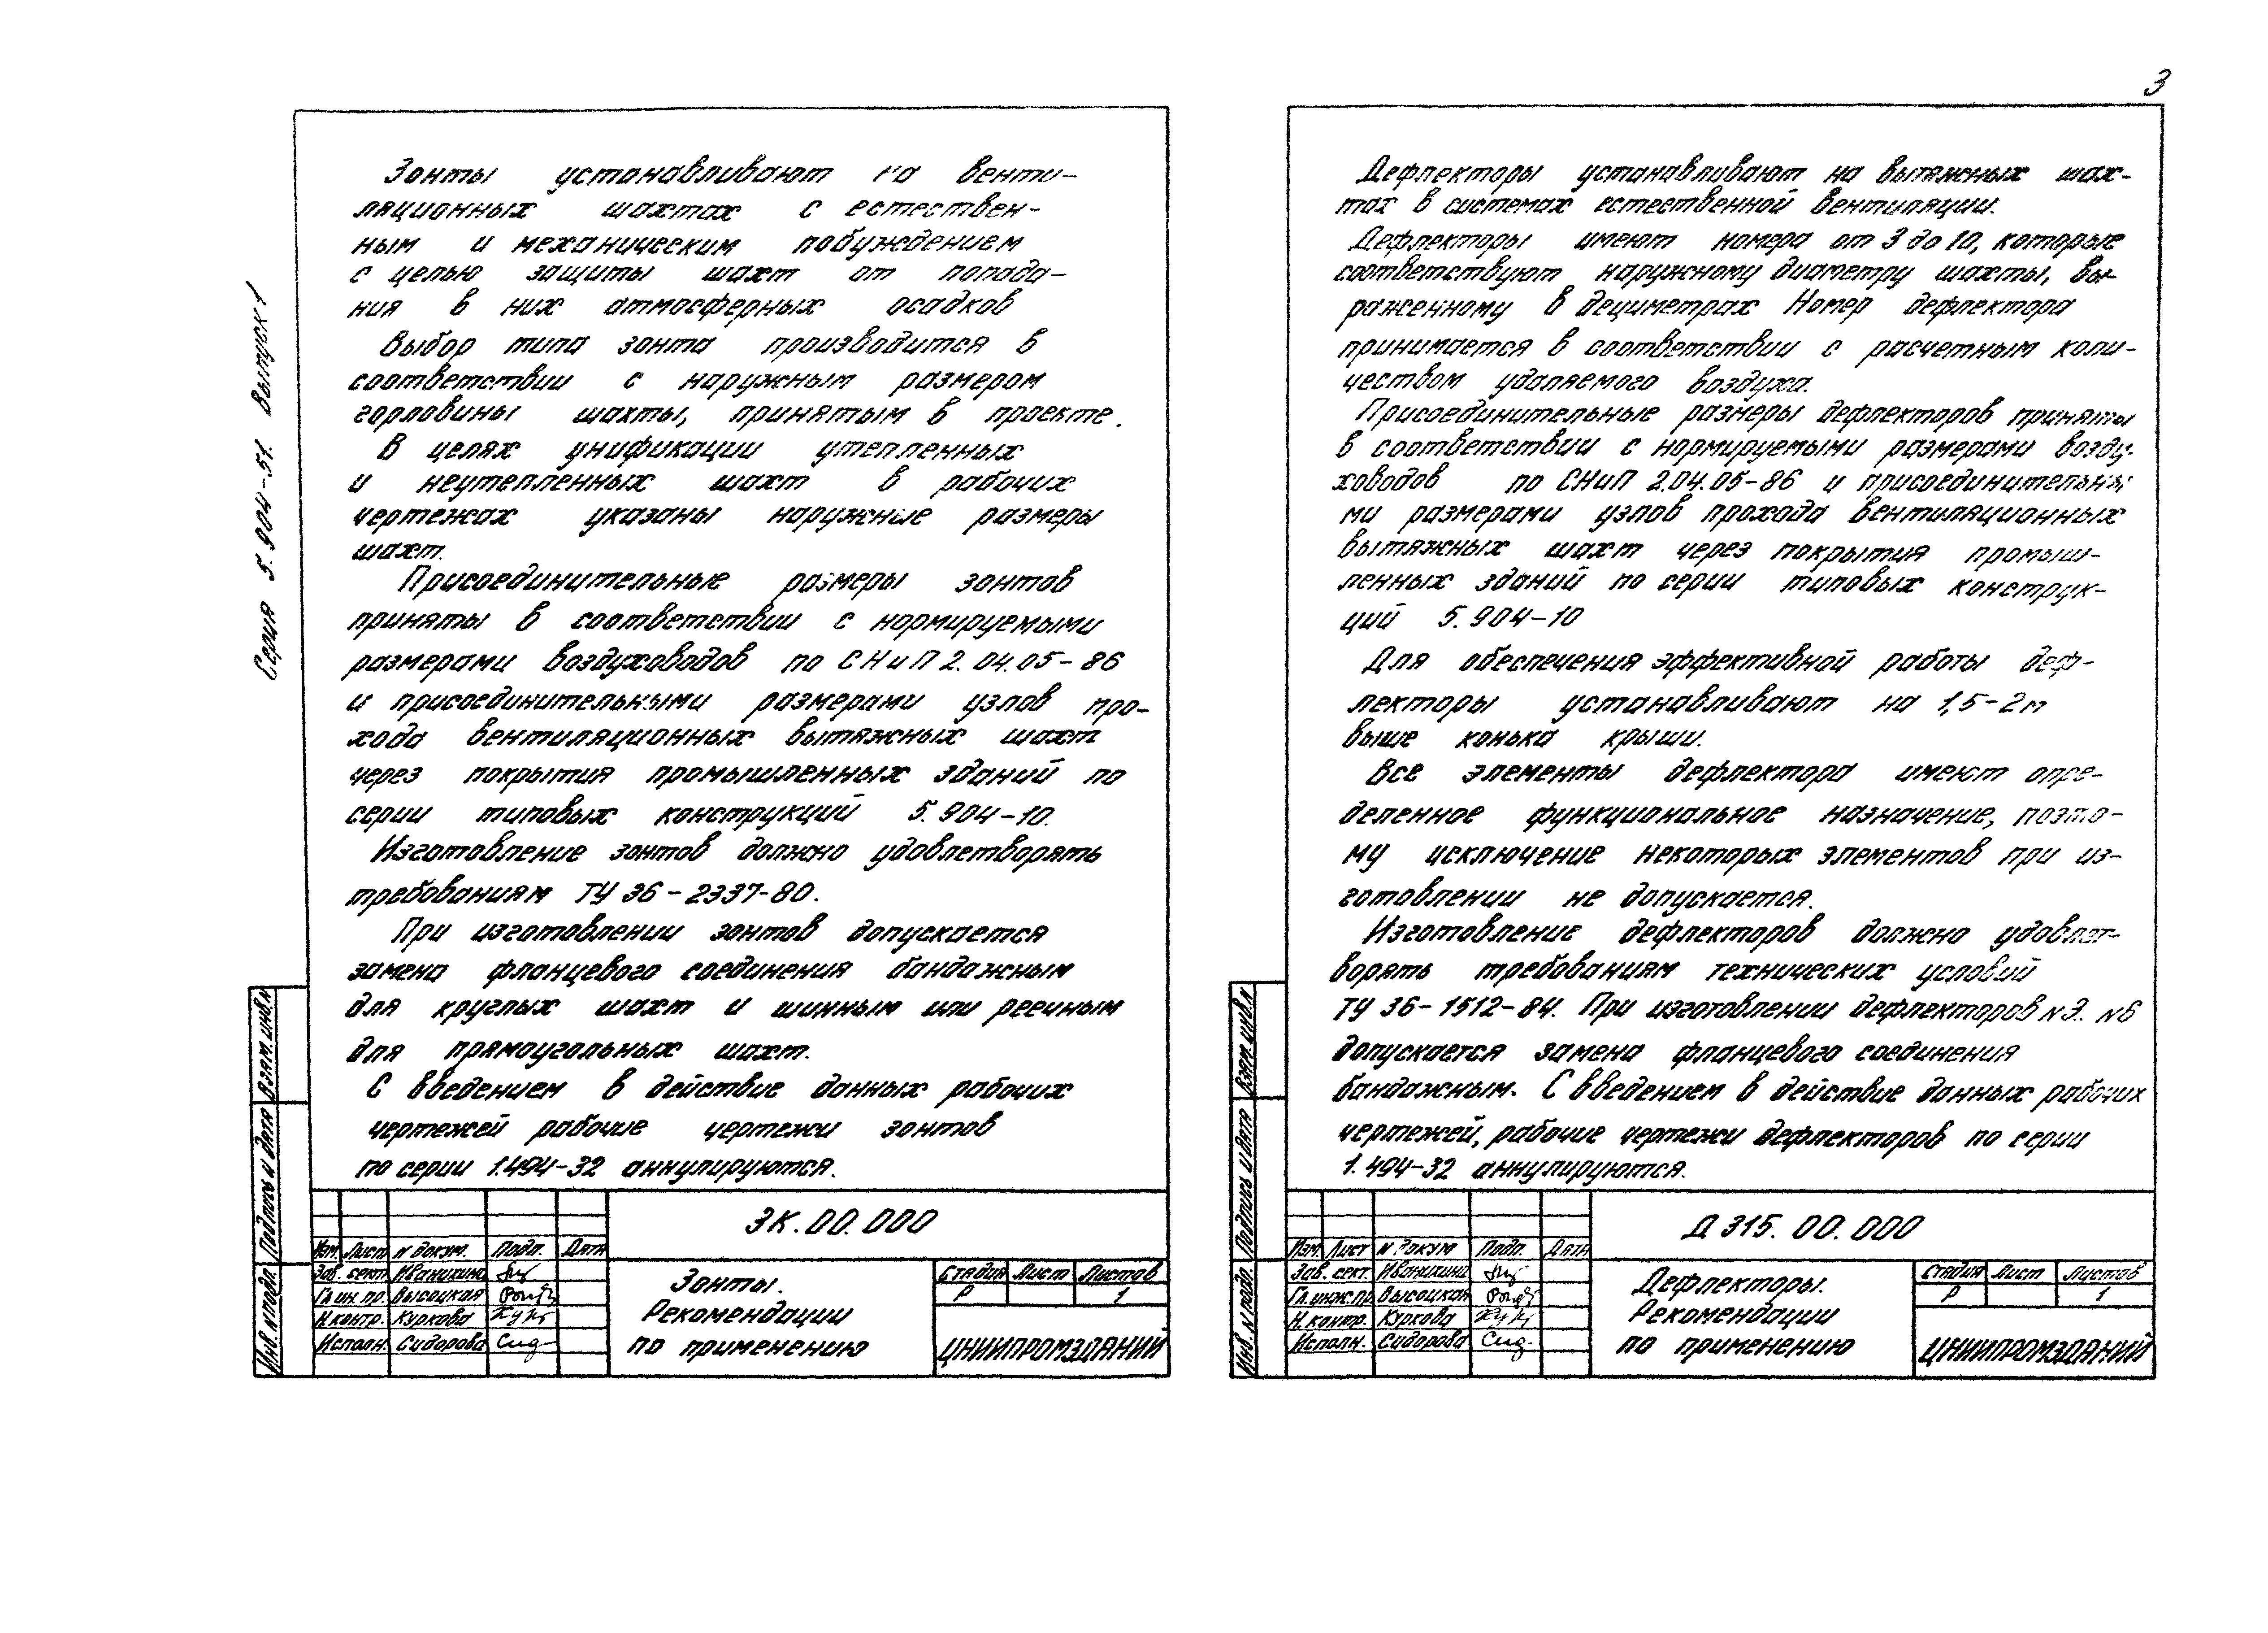 3
Серия 5.904-51. Выпуск 1
Зонты устанавливают на венти-
ляционных шахтах с естествен-
ным и механическим побуждением
с целью защиты шахт от попада-
ния в них атмосферных осадков
Выбор типа зонта производится в
соответствии с наружным размером
горловины шахты, принятым в проекте.
В целях унификации утепленных
и неутепленных шахт в рабочих
чертежах указаны наружные размеры
шахт.
Присоединительные размеры зонтов
приняты в соответствии с нормируемыми
размерами воздуховодов по СНиП 2.04.05-86
и присоединительными размерами узлов про-
хода вентиляционных вытяжных шахт
через покрытия промышленных зданий по
серии типовых конструкций 5.904-10.
Изготовление зонтов должно удовлетворять
требованиям ТУ 36-2337-80.
При изготовлении зонтов допускается
замена фланцевого соединения бандажным
для круглых шахт и шинным или реечным
для прямоугольных шахт.
С введением в действие данных рабочих
чертежей рабочие чертежи зонтов
по серии 1.494-32 аннулируются.
ЗК.00.000
Изм. Лист N докум. Подп. Дата
Зав. сект. Иванихина
Гл.ин.пр. Высоцкая
Н.контр. Куркова
Исполн. Сидорова Сид
Зонты.
Рекомендации
по применению
Стадия Лист Листов
Р 1
ЦНИИПРОМЗДАНИЙ
Взам.инв.N
Подпись и дата
Инв.N подл.
Дефлекторы устанавливают на вытяжных шах-
тах в системах естественной вентиляции.
Дефлекторы имеют номера от 3 до 10, которые
соответствуют наружному диаметру шахты, вы-
раженному в дециметрах Номер дефлектора
принимается в соответствии с расчетным коли-
чеством удаляемого воздуха.
Присоединительные размеры дефлекторов приняты
в соответствии с нормируемыми размерами возду-
ховодов по СНиП 2.04.05-86 и присоединительны-
ми размерами узлов прохода вентиляционных
вытяжных шахт через покрытия промыш-
ленных зданий по серии типовых конструк-
ций 5.904-10
Для обеспечения эффективной работы деф-
лекторы устанавливают на 1,5-2м
выше конька крыши.
Все элементы дефлектора имеют опре-
деленное функциональное назначение, поэто-
му исключение некоторых элементов при из-
готовлении не допускается.
Изготовление дефлекторов должно удовлет-
ворять требованиям технических условий
ТУ 36-1512-84. При изготовлении дефлекторов N3. N6
допускается замена фланцевого соединения
бандажным. С введением в действие данных рабочих
чертежей, рабочие чертежи дефлекторов по серии
1.494-32 аннулируются.
Д 315.00.000
Изм. Лист N докум Подп. Дата
Зав. сект. Иванихина
Гл.инж.пр. Высоцкая
Н.контр. Куркова
Исполн. Сидорова Сид
Дефлекторы.
Рекомендации
по применению
Стадия Лист Листов
Р 1
ЦНИИПРОМЗДАНИЙ
Взам.инв.N
Подпись и дата
Инв.N подл.